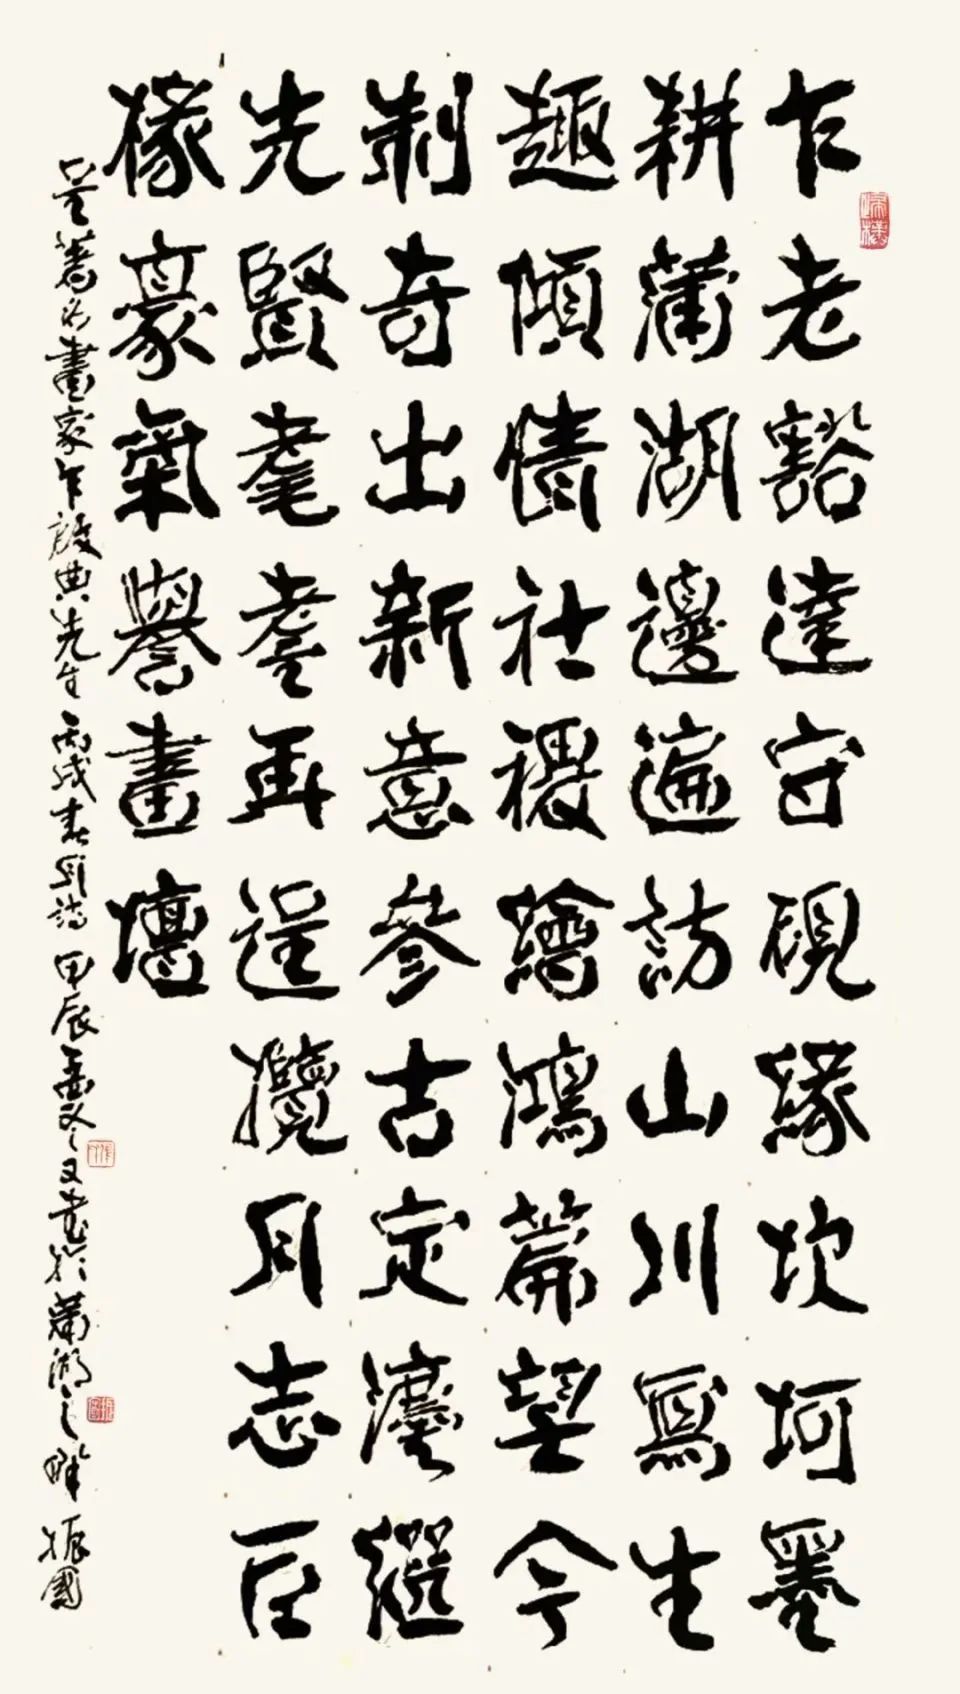 乍老豁達守硯緣坎坷墨
耕蒲湖邊遍訪山川寫生
趣傾情社稷繪鴻篇契今
制奇出新意參古定灋繼
先賢耄耋再逞攬月志巨
椽豪氣譽畫壇
呈著名畫家乍啟典先生 丙戌春月詩 甲辰 又書於蒲湖之畔 振國